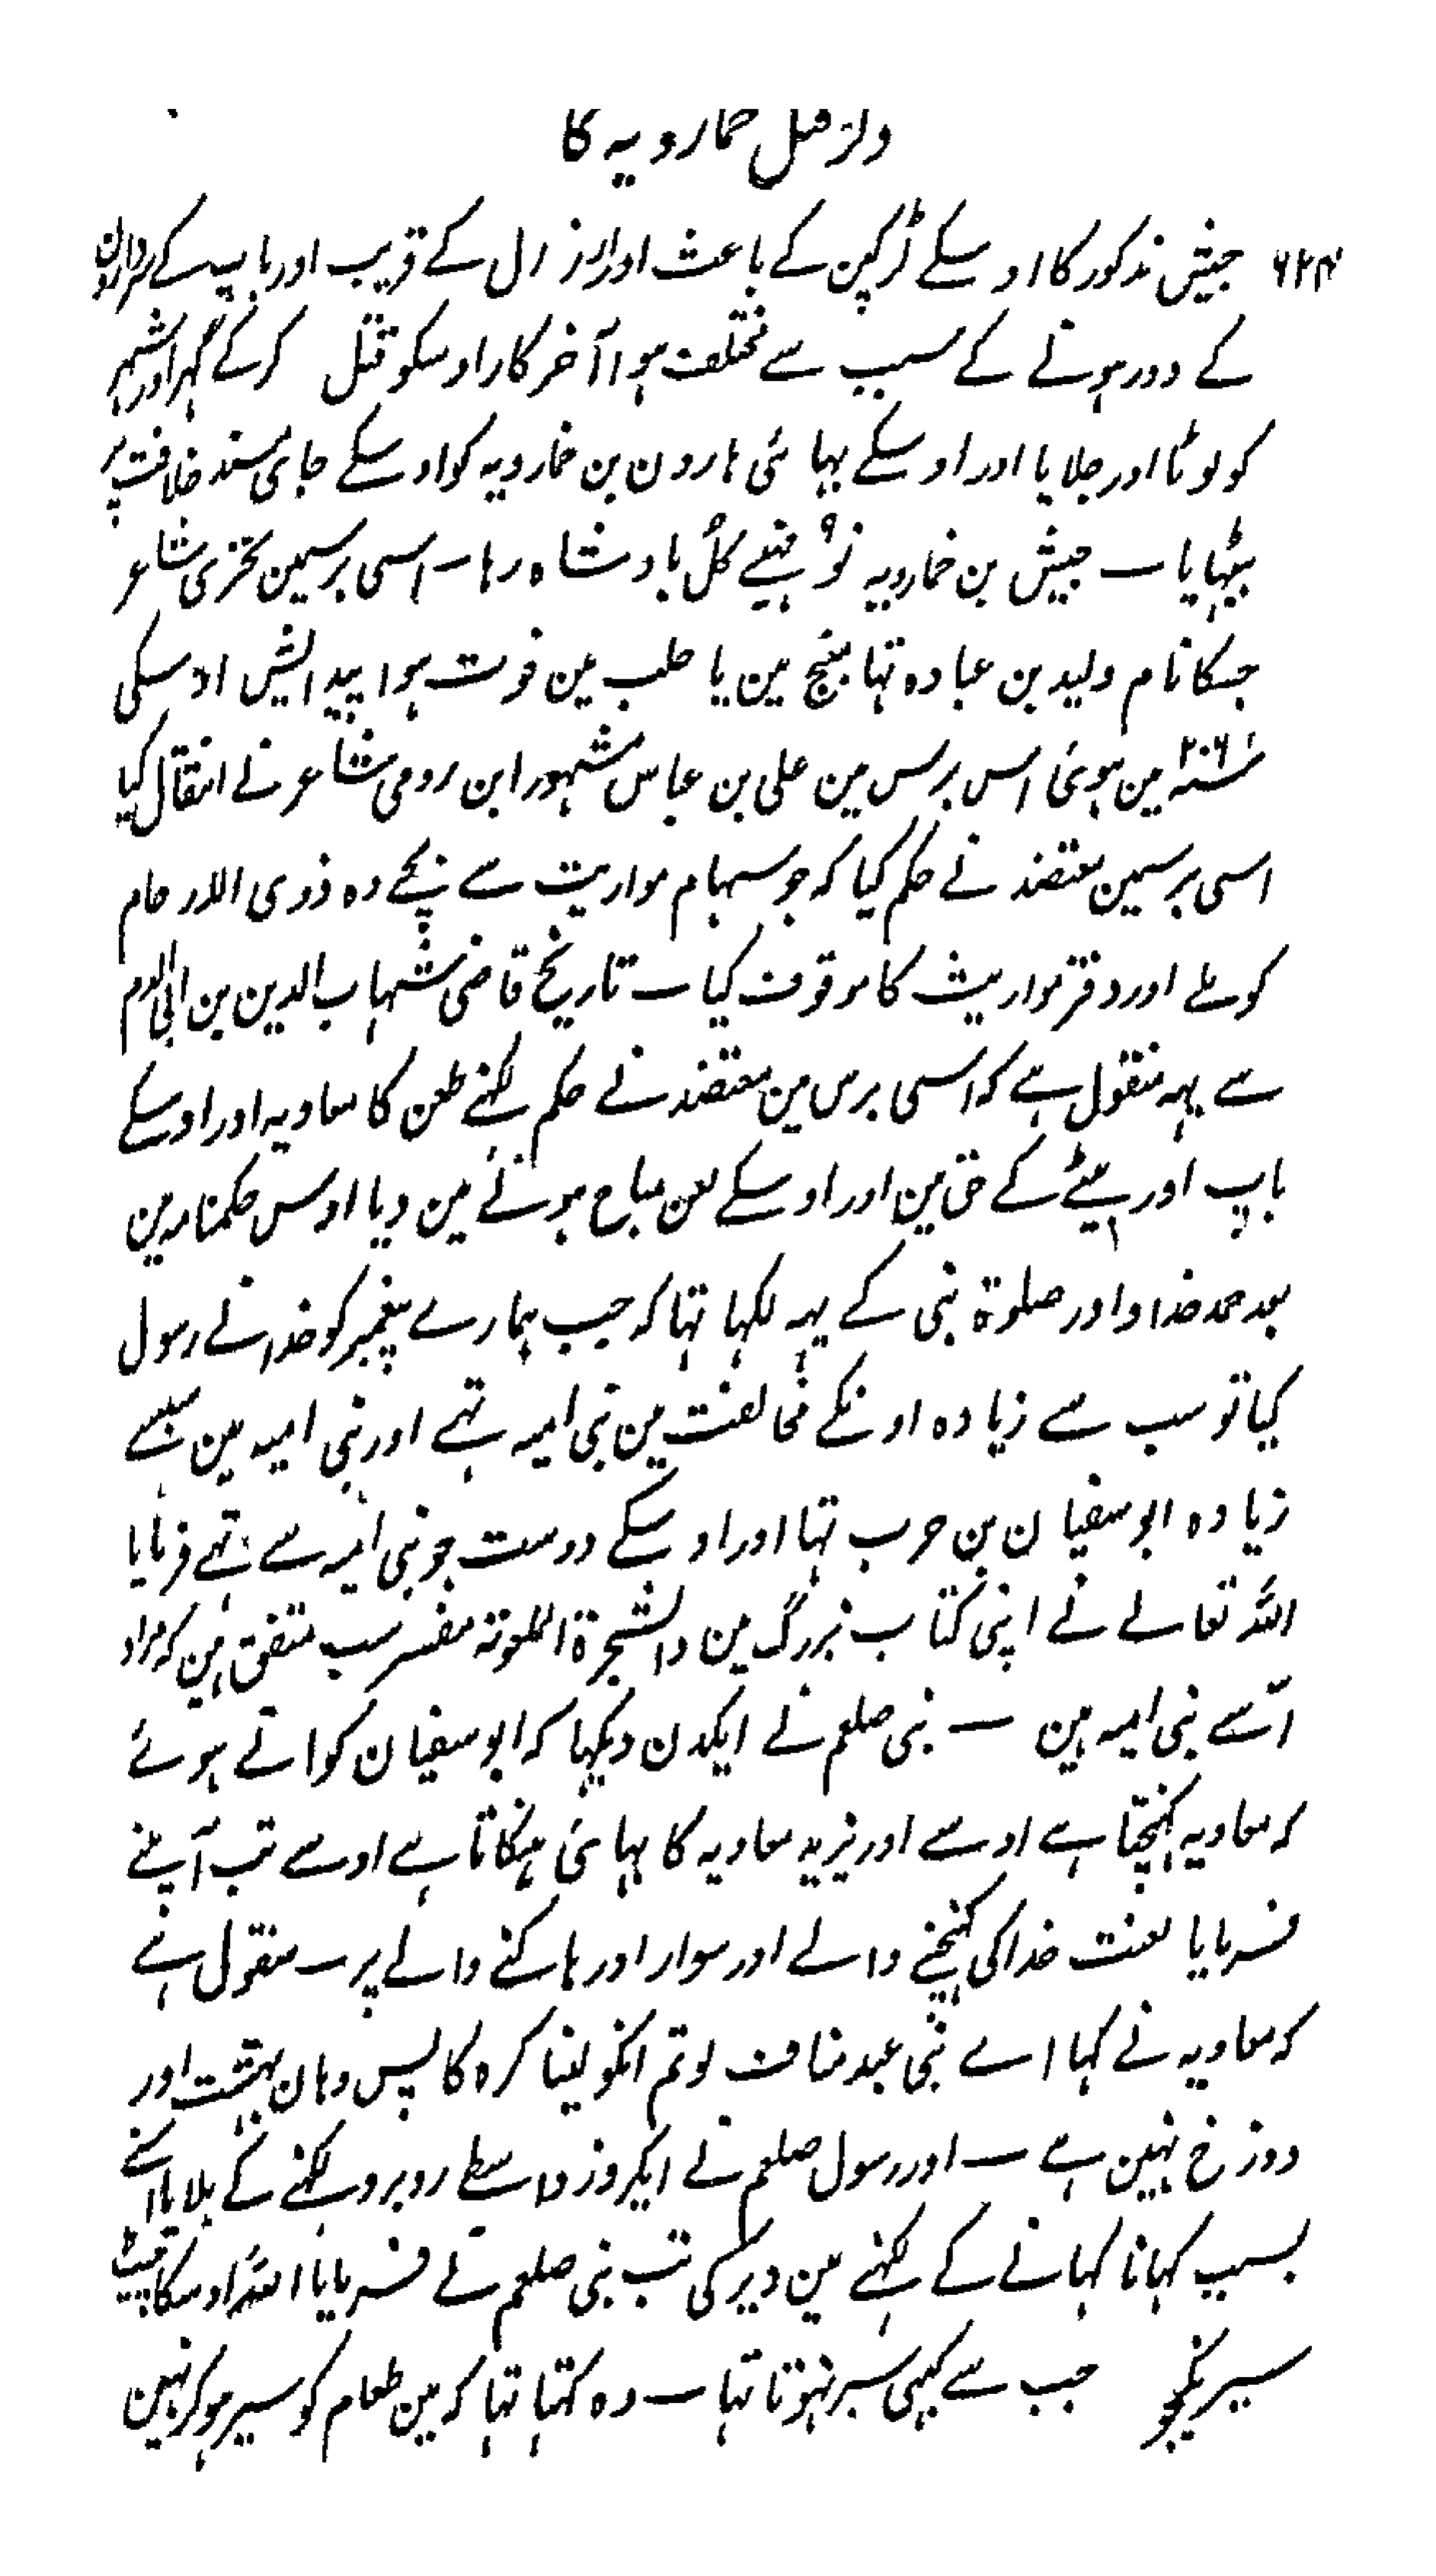 ذکر قتل خمارویہ کا
۶۲۴ جیش مذکور کا اوسکے لڑکپن کے باعث اور ارزال کے قریب اور باپ کے سرداروں
کے دور ہونے کے سبب سے مختلف ہوا آخر کار اوسکو قتل کرکے گہر اور شہر
کو لوٹا اور جلایا اور اوسکے بہائی ہارون بن خمارویہ کو اوسکے جای مسند خلافت پر
بیٹہایا ۔ جیش بن خمارویہ نو مہینے کل بادشاہ رہا ۔ اسی برسمین بحتری شاعر
جسکا نام ولید بن عبادہ تہا منبج مین یا حلب مین فوت ہوا پیدایش اوسکی
سنہ۲۰۶ مین ہوئی اس برس مین علی بن عباس مشہور ابن رومی شاعر نے انتقال کیا
اسی برسمین معتضد نے حکم کیا کہ جو سہام مواریث سے بچے وہ ذوی الارحام
کو ملے اور دفتر مواریث کا موقوف کیا ۔ تاریخ قاضی شہاب الدین بن ابی الدم
سے یہہ منقول ہے کہ اسی برس مین معتضد نے حکم لکہنے طعن کا معاویہ اور اوسکے
باپ اور بیٹے کے حق مین اور اوسکے لعن مباح ہونے مین دیا اوس حکمنامہ مین
بعد حمد خدا و اور صلوۃ نبی کے یہہ لکہا تہا کہ جب ہمارے پیغمبر کو خدا نے رسول
کیا تو سب سے زیادہ اونکے مخالفت مین بنی امیہ تہے اور بنی امیہ مین سبسے
زیادہ ابو سفیان بن حرب تہا اور اوسکے دوست جو بنی امیہ سے تہے فرمایا
اللہ تعالے نے اپنی کتاب بزرگ مین والشجرۃ الملعونۃ مفسر سب متفق ہین کہ مراد
اسّے بنی امیہ ہین ۔ نبی صلعم نے ایکدن دیکہا کہ ابو سفیان کو اتے ہوئے
کہ معاویہ کہنچتا ہے اوسے اور یزید معاویہ کا بہائی ہنکاتا ہے اوسے تب آپنے
فرمایا لعنت خدا کی کہنچنے والے اور سوار اور ہاکنے والے پر ۔ منقول ہے
کہ معاویہ نے کہا اے بنی عبد مناف لو تم انکو لینا کرہ کا پس وہان بہشت اور
دوزخ نہین ہے ۔ اور رسول صلعم نے ایکروز واسطے روبرو لکہنے کے بلایا اسنے
بسبب کہانا کہانے کے لکہنے مین دیر کی تب نبی صلعم نے فرمایا اللہ اوسکا پیٹ
سیر نکیجو جب سے کبہی سیر نہوتا تہا ۔ وہ کہتا تہا کہ مین طعام کو سیر ہو کر نہین